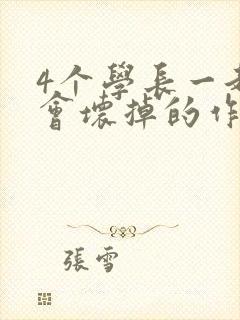 4个學長一
會壞掉的
張雪